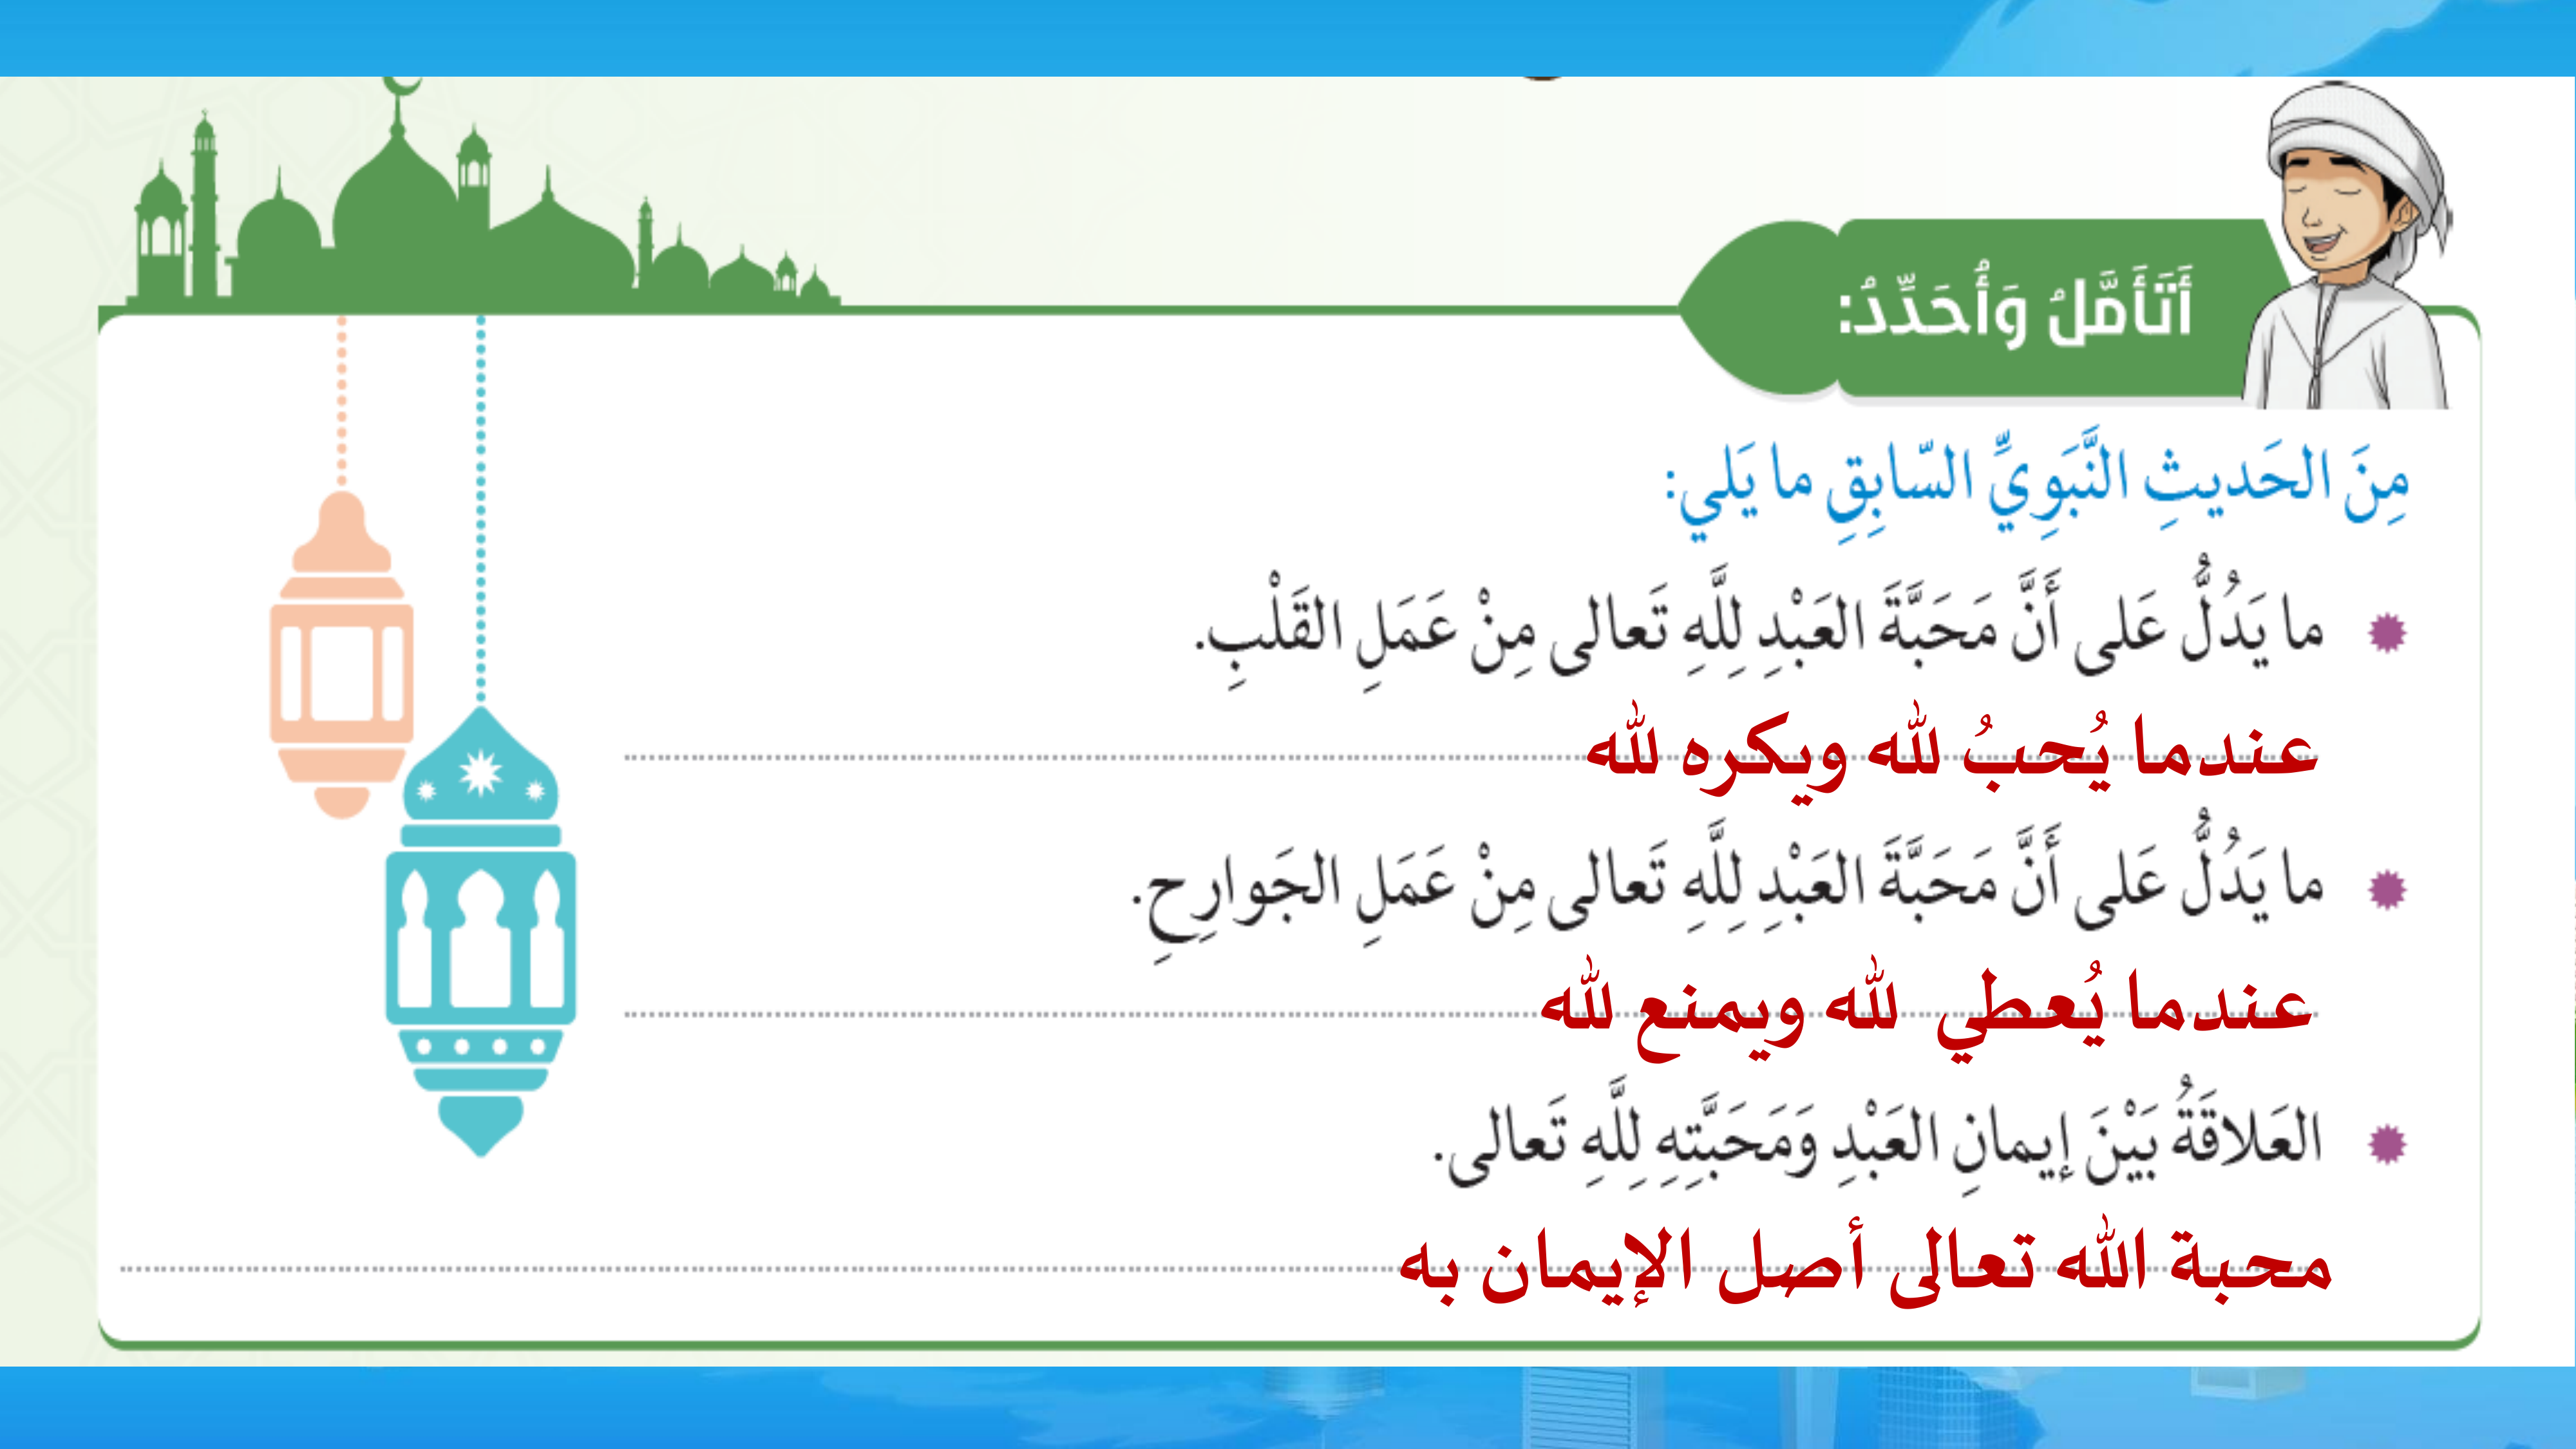 أَتَأَمَّلُ وَأُحَدِّدُ:
مِنَ الحَديثِ النَّبَوِيِّ السّابِقِ ما يَلي:
ما يَدُلُّ عَلى أَنَّ مَحَبَّةَ العَبْدِ لِلَّهِ تَعالى مِنْ عَمَلِ القَلْبِ.
عندما يُحبُ لله ويكره لله
ما يَدُلُّ عَلى أَنَّ مَحَبَّةَ العَبْدِ لِلَّهِ تَعالى مِنْ عَمَلِ الجَوارِحِ.
عندما يُعطي لله ويمنع لله
العَلاقَةُ بَيْنَ إيمانِ العَبْدِ وَمَحَبَّتِهِ لِلَّهِ تَعالى.
محبة الله تعالى أصل الإيمان به